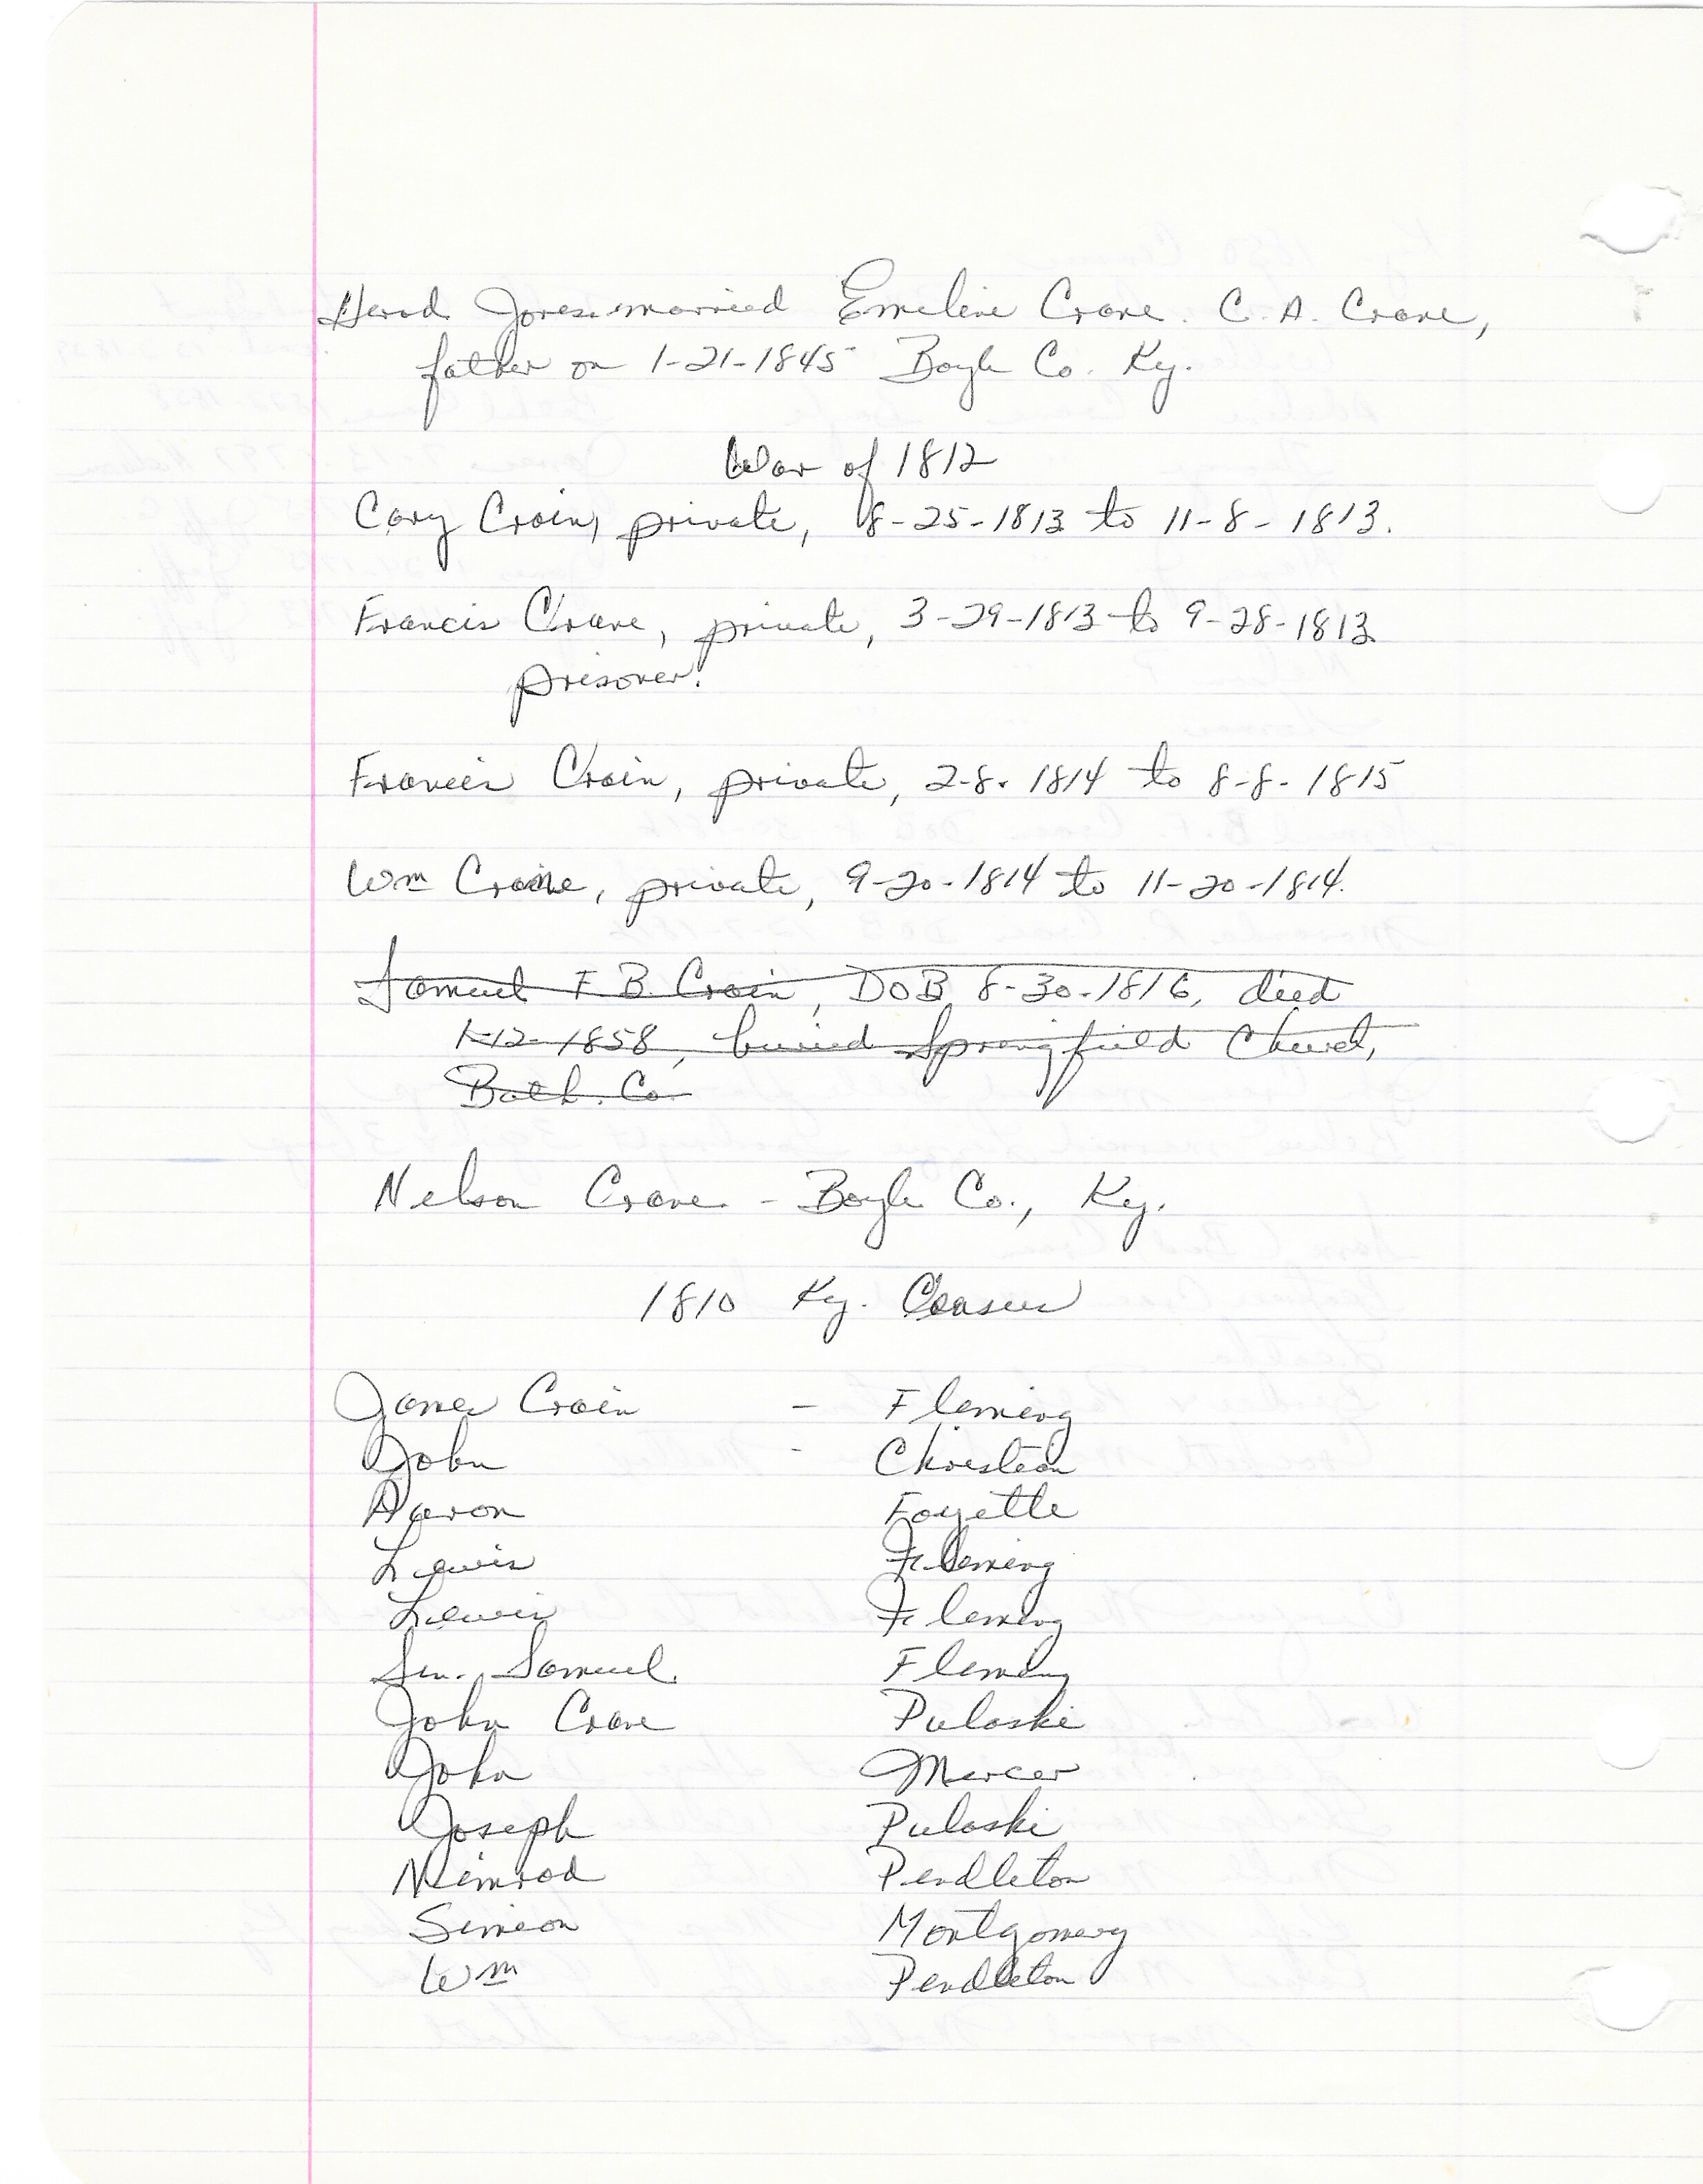 Herod Jones married Emeline Crane. C. A. Crane,
father on 1-21-1845 Boyle Co. Ky.
War of 1812
Cary Crain, private, 8-25-1813 to 11-8-1813.
Francis Crane, private, 3-29-1813 to 9-28-1813
prisoner.
Francis Crain, private, 2-8-1814 to 8-8-1815
Wm Craine, private, 9-20-1814 to 11-20-1814.
Samuel F B Crain, DOB 8-30-1816, died
1-12-1858, buried Springfield Church,
Bath Co.
Nelson Crane - Boyle Co., Ky.
1810 Ky. Census
James Crain - Fleming
John - Christian
Aaron Fayette
Lewis Fleming
Lewis Fleming
Sen. Samuel Fleming
John Crane Pulaski
John Mercer
Joseph Pulaski
Nimrod Pendleton
Simeon Montgomery
Wm Pendleton